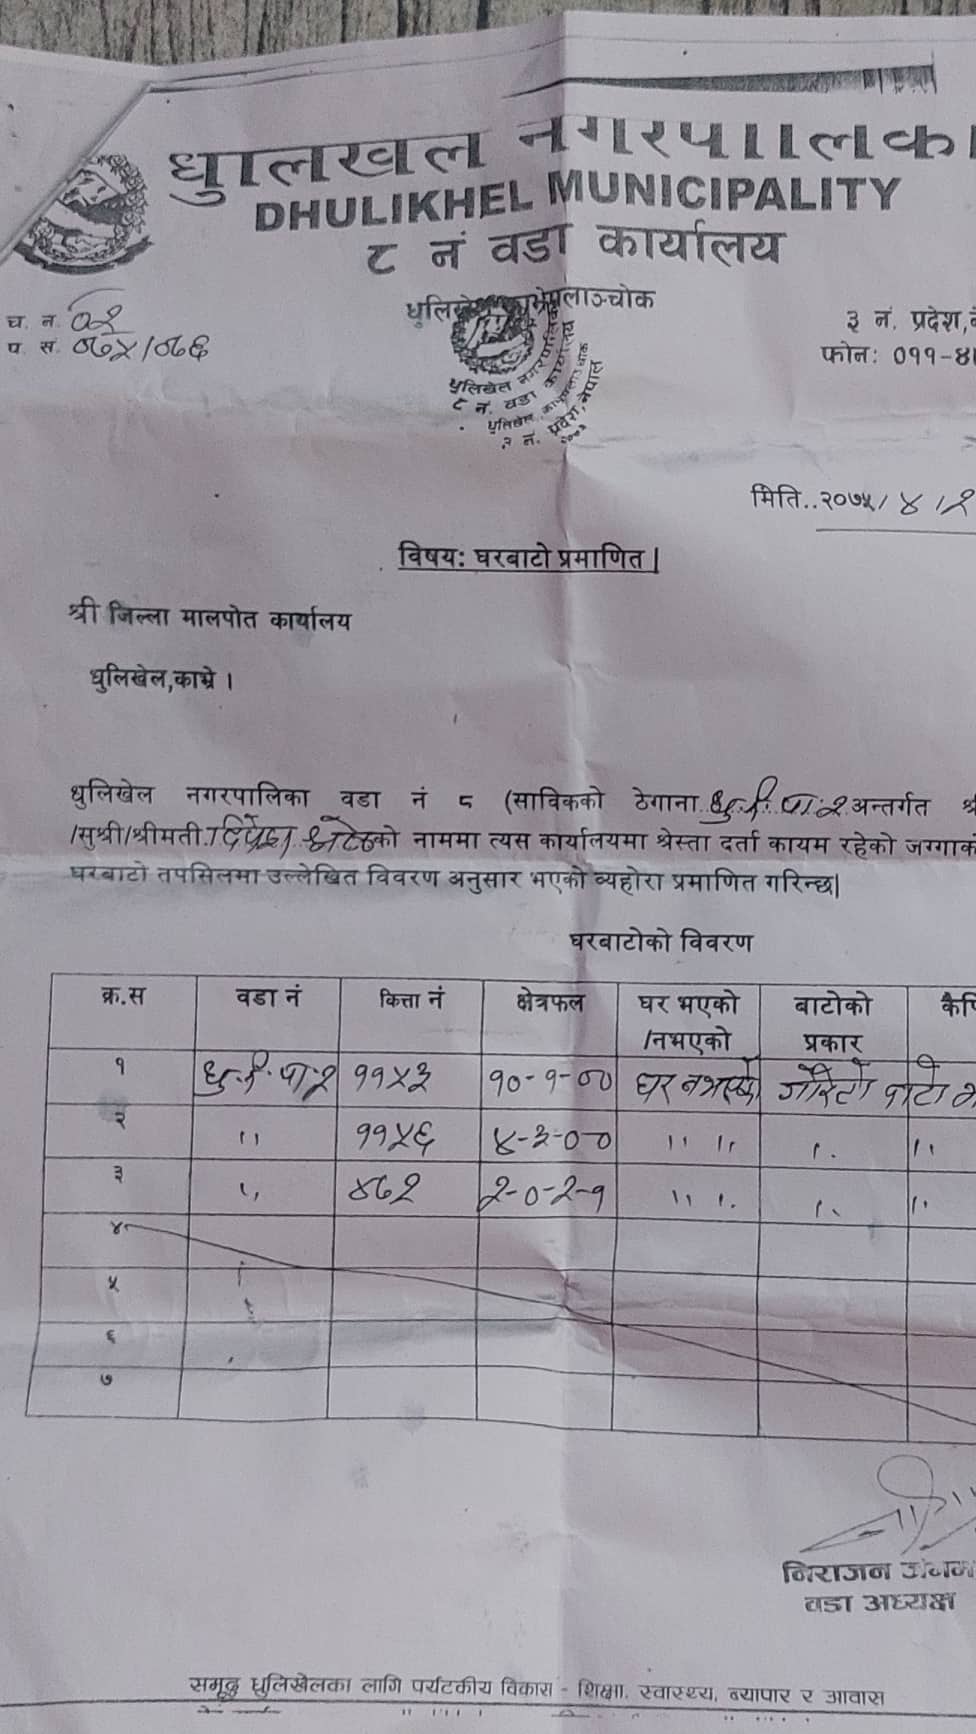 धुलिखेल नगरपालिका
DHULIKHEL MUNICIPALITY
८ नं वडा कार्यालय
धुलिखेल, काभ्रेपलाञ्चोक
च. न. ०२
प. सं. ०७५/०७६
३ नं. प्रदेश,
फोन: ०११-४
धुलिखेल नगरपालिका
८ नं. वडा कार्यालय
धुलिखेल, काभ्रेपलाञ्चोक
३ नं. प्रदेश, नेपाल
मिति..२०७५/४/२
विषय: घरबाटो प्रमाणित|
श्री जिल्ला मालपोत कार्यालय
धुलिखेल,काभ्रे ।
धुलिखेल नगरपालिका वडा नं ८ (साविकको ठेगाना धु.न.पा.२ अन्तर्गत श्री
/सुश्री/श्रीमती को नाममा त्यस कार्यालयमा श्रेस्ता दर्ता कायम रहेको जग्गाको
घरबाटो तपसिलमा उल्लेखित विवरण अनुसार भएको व्यहोरा प्रमाणित गरिन्छ|
घरबाटोको विवरण
क्र.स वडा नं कित्ता नं क्षेत्रफल घर भएको /नभएको बाटोको प्रकार कैफि
१ धु.न.पा.२ ११५३ १०-१-०० घर नभएको गोरेटो बाटो
२ ,, ११५६ ४-३-०० ,, ,, ,, ,,
३ ,, ४७२ २-०-२-१ ,, ,, ,, ,,
४
५
६
७
निराजन जंगम
वडा अध्यक्ष
समृद्ध धुलिखेलका लागि पर्यटकीय विकास - शिक्षा, स्वास्थ्य, व्यापार र आवास